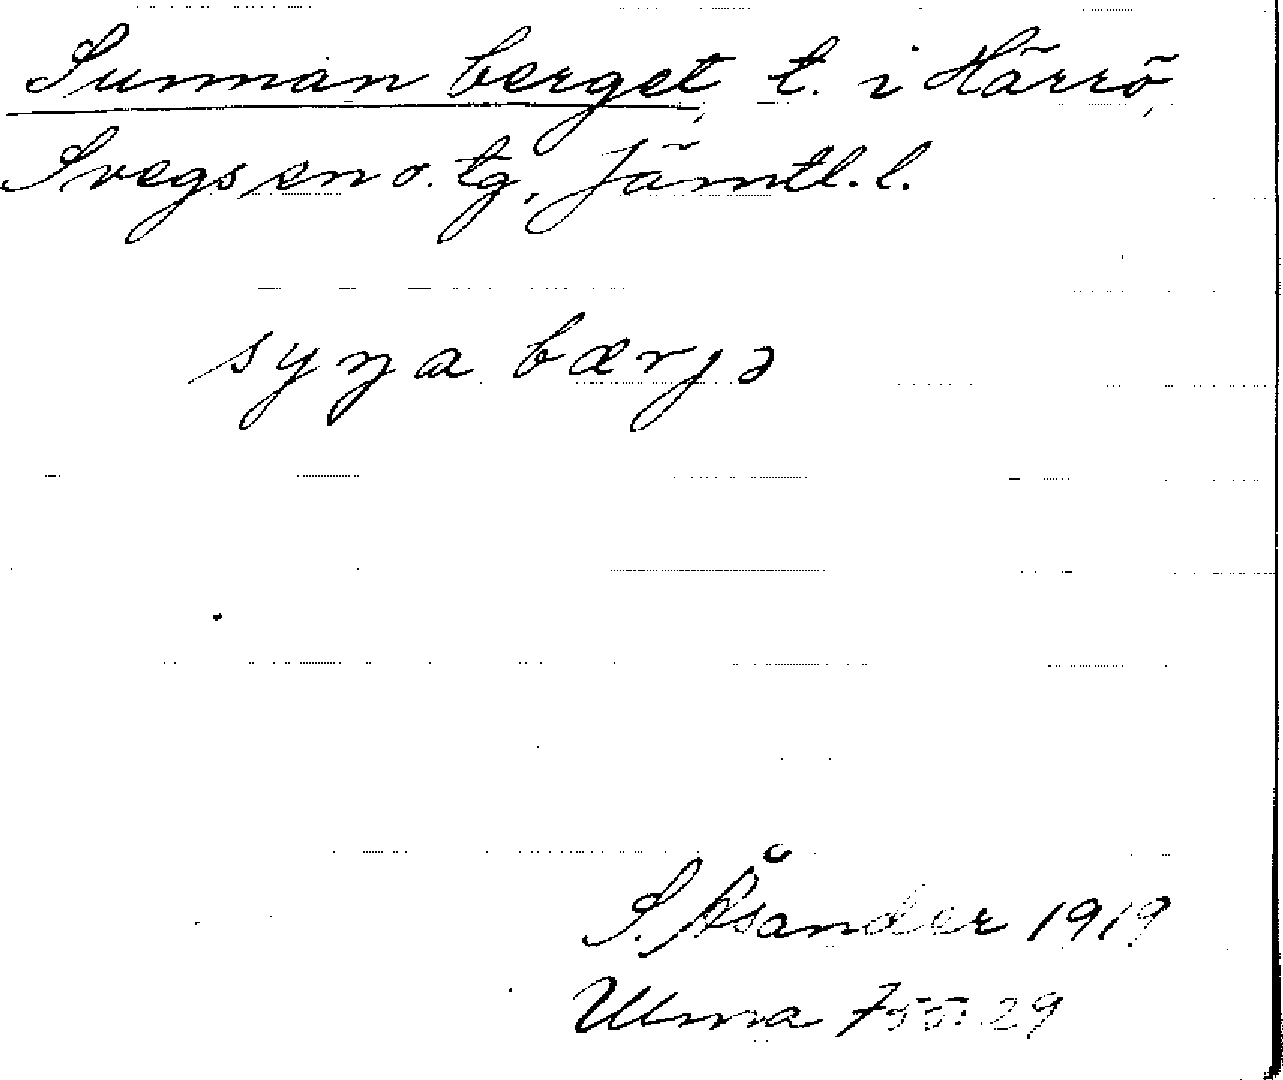 Sunnanberget, t. i Härrö,
Svegs sn o. tg, Jämtl. l.
syŋa bærjə
S. Åsander 1919
Ulma 755:29